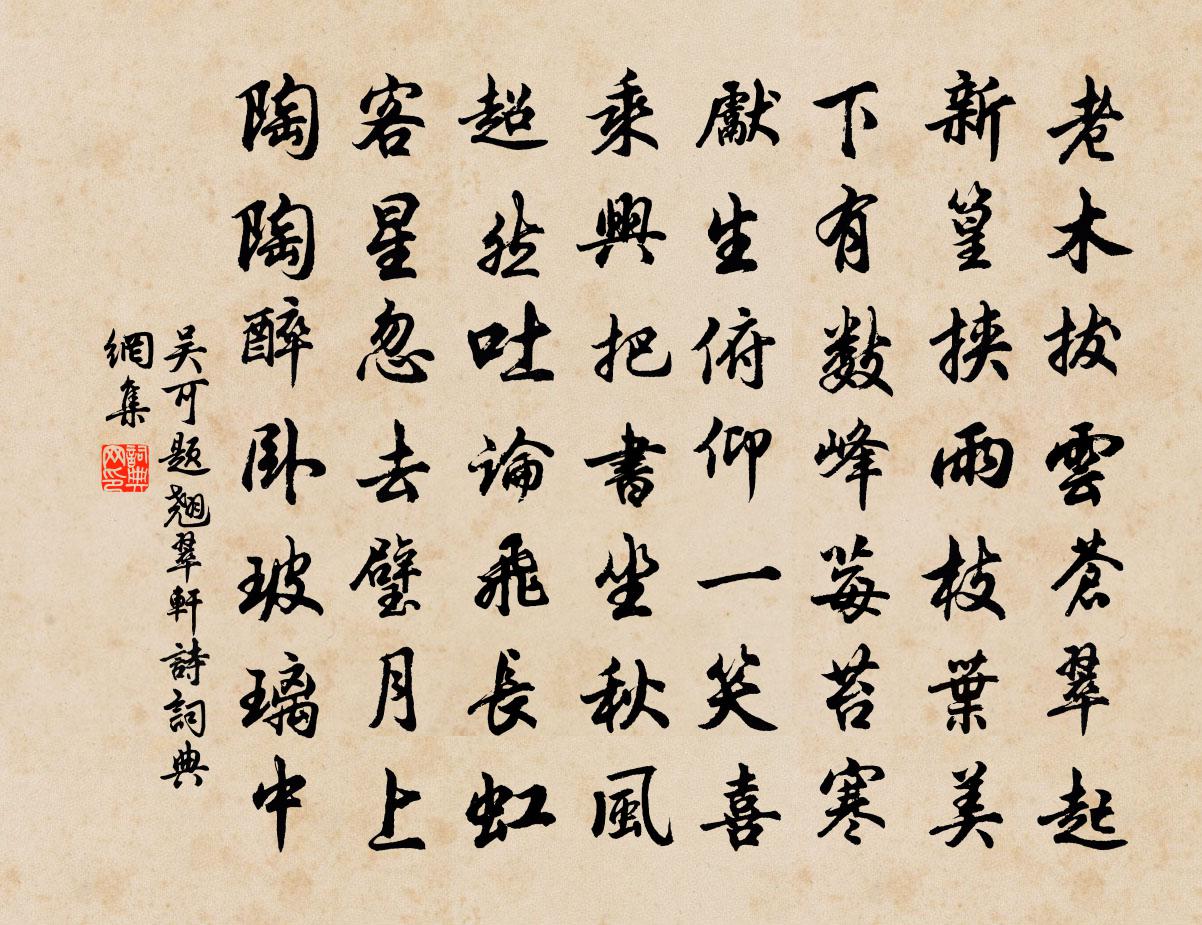 老木拔雲蒼翠起
新篁挾雨枝葉美
下有數峰莓苔寒
獻生俯仰一笑喜
乘興把書坐秋風
超然吐論飛長虹
客星忽去璧月上
陶陶醉臥玻璃中
吴可題翹翠軒詩詞典
網集
詞典網印